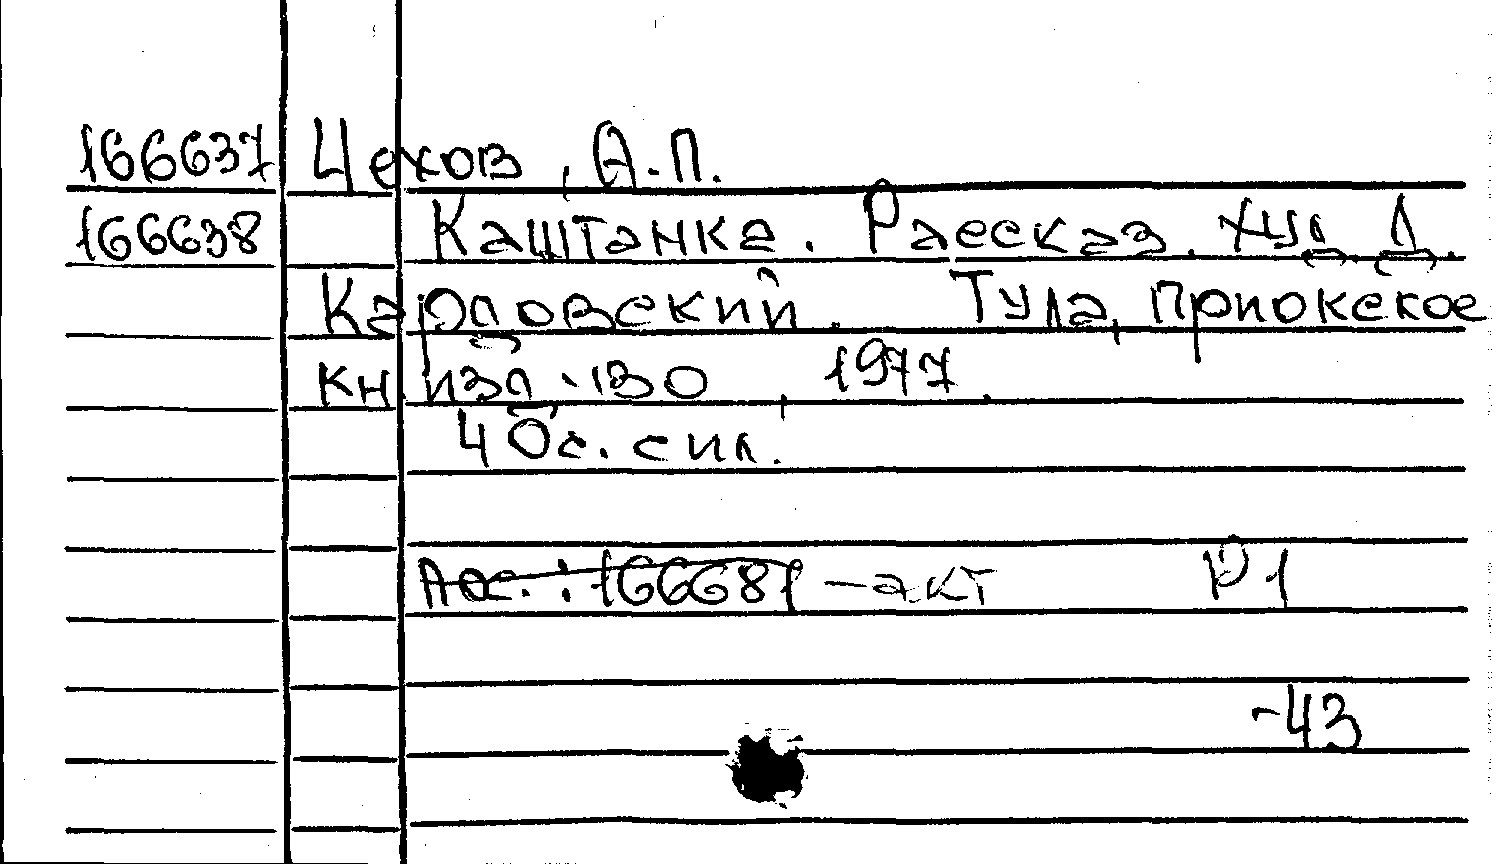 166637 Чехов, А.П.
166638 Каштанка. Рассказ. Худ. Д.
Карловский. Тула, Приокское
кн. изд-во, 1977.
40с. с ил.
Аос.: 166681 – акт Р1
-43